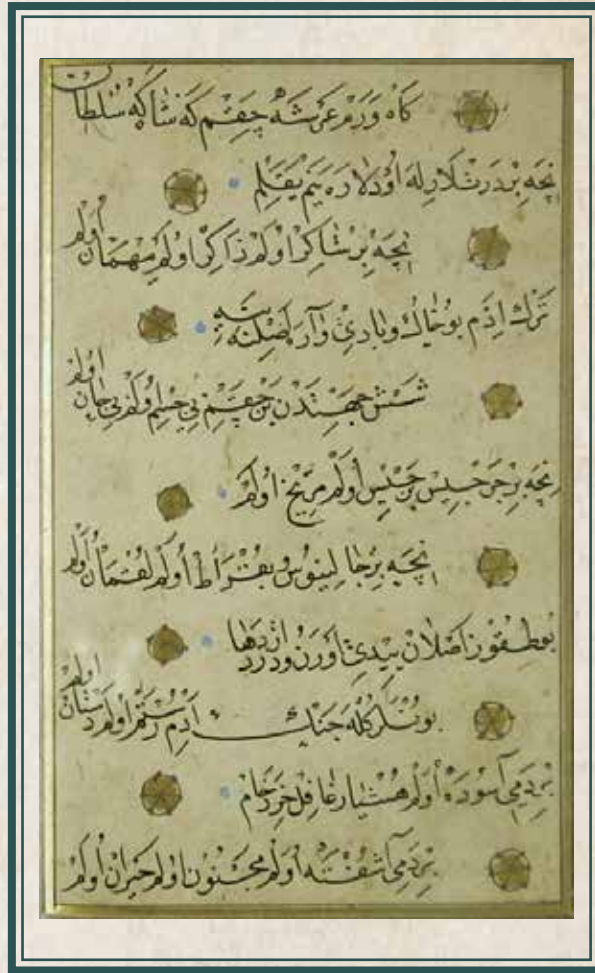 كاه وَرَم عرشه چقم كه شاكه سلطان
نچه بر درتلارله اودلاره ينم يقلم
نچه بر شاكر اولم ذاكر اولم مهمان اولم
ترك ادم بو خاك وبادي وآرم اصلنه
شش جهتدن بن چقم بي جسم اولم بي جان اولم
نچه بر جرجيس برجيس اولم مريخ اولم
نچه بر جالينوس وبقراط اولم لقمان اولم
بو طقوز اصلان ييدي اورن ودرد اژدها
بونلركله جنك ادم رستم اولم دستان اولم
بر دمي آسوده اولم هشيار غافل خرد خام
بر دمي آشفته اولم مجنون اولم حيران اولم